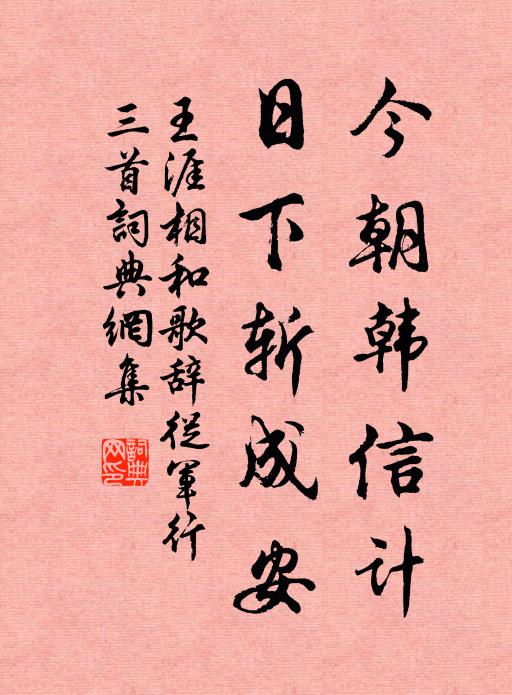 今朝韩信计
日下斩成安
王涯相和歌辞從軍行
三首詞典網集
詞典网印